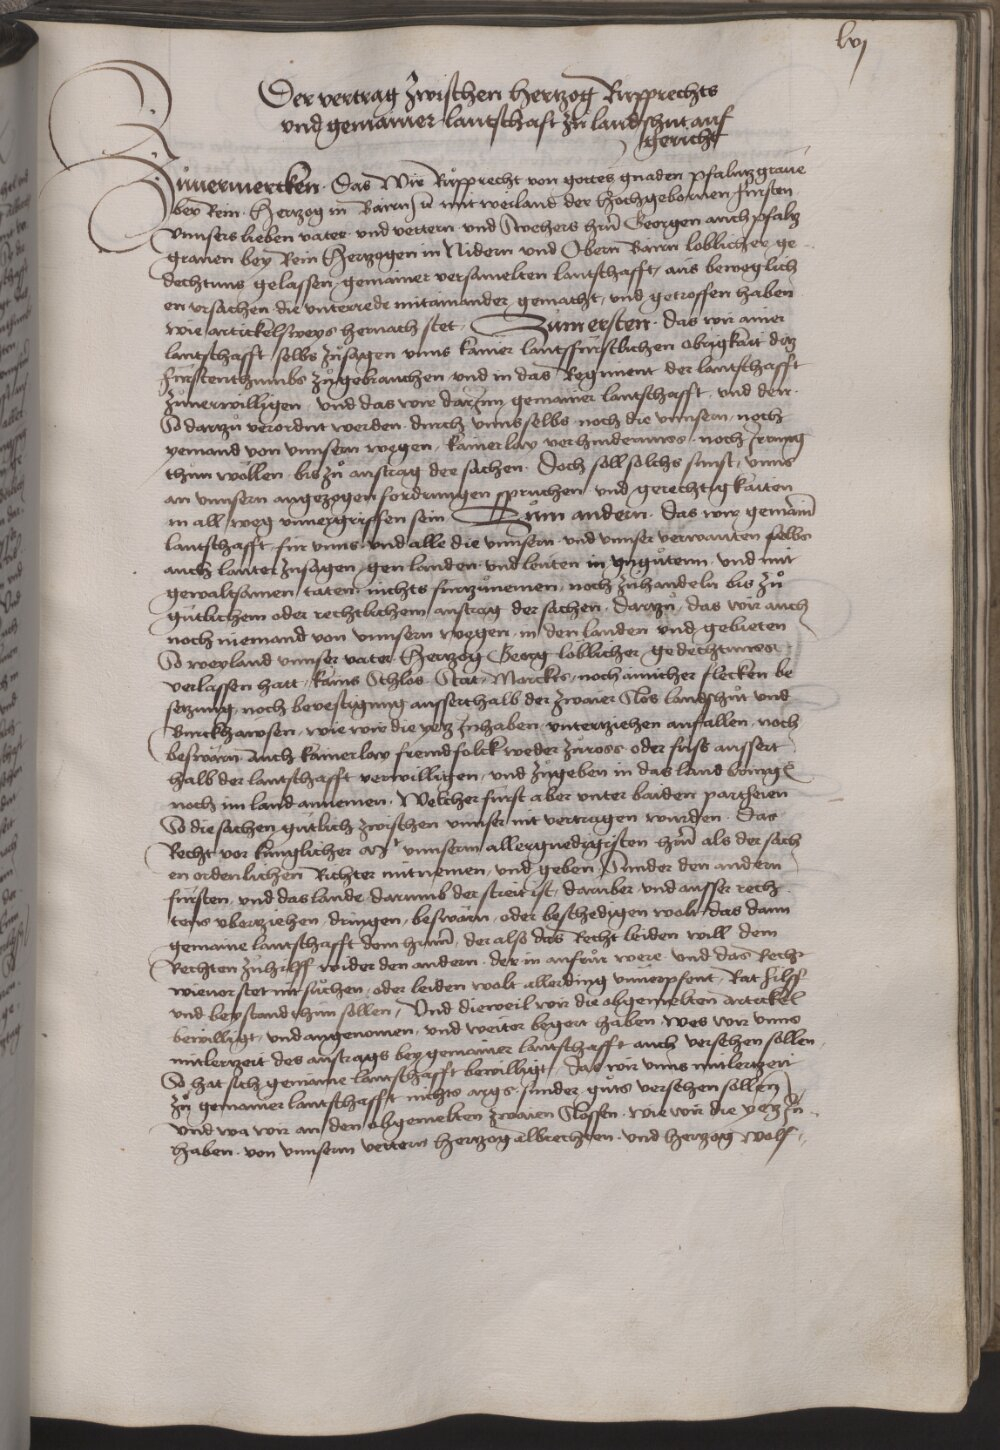 lvj
Der vertrag zwischen hertzog Rupprechts
vnd gemainer lantschaft zu landshut auf
gericht
Zuuermercken. Das Wir Rupprecht von gottes gnaden pfaltzgraue
bey Rein Hertzog in Bairn mit weiland der Hochgebornen fursten
vnnsers lieben vater vnd vettern vnd Swehers hern Georgen auch pfaltz
grauen bey Rein Hertzogen in Nidern vnd Obern Bairn loblicher ge
dechtnus gelassen, gemainer versamelten lantschafft, aus beweglich
en vrsachen die vnterrede mitainander gemacht, vnd getroffen haben
wie artickelsweys hernach stet. Zum ersten. das wir ainer
lantschafft selbs zusagen vnns kainer lantsfurstlichen obrigkait des
furstenthumbs zugebrauchen, vnd in das Regiment der lantschafft
zuuerwilligen, vnd das wir darInn gemainer lantschafft, vnd den
So dartzu verordnt werden durch vnns selbs noch die vnnsern, noch
yemand von vnnsern wegen, kainerlay verhindernuss noch Irrung
thun wöllen bis zu austrag der sachen. Doch soll solchs sunst, vnns
an vnnsern angezogen fordrungen spruchen vnd gerechtigkaiten
in all weg vnuergriffen sein Zum andern. das wir gemain
lantschafft fur vnns vnd alle die vnnsern vnd vnnser verwanten selbs
auch lauter zusagen gen landen vnd leuten in vngutem vnd mit
gewaltsamen taten nichts furzunemen noch zuhandeln bis zu
gutlichem oder rechtlichem austrag der sachen. dartzu, das wir auch
noch niemand von vnnsern wegen in den landen vnd gebieten
So weyland vnnser vater Hertzog Georg loblicher gedechtnuss
verlassen hatt, kains Schlos Stat, Marckts, noch ainicher flecken be
setzung noch bevestigung ausserthalb der zwaier Slos landshut vnd
Burckhawsen, wie wir die yetz Inhaben vnterziehen anfallen noch
beswärn Auch kainerlay fremdfolck weder zuross oder fuss aussert
halb der lantschafft verwilligen vnd zugeben in das land bringen
noch im land annemen. Welcher furst aber vnter baiden partheien
So die sachen gutlich zwischen vnnser nit vertragen wurden. Das
Recht vor kunglicher Mt vnnserm allergnedigisten hern als der sach
en ordenlichen Richter nit nemen vnd geben Sunder den andern
fursten, vnd das lande darumb der streit ist, daruber vnd ausser rech
tens vberziehen, dringen, beswärn oder beschedigen wolt, das dann
gemaine lantschafft dem hern, der also das Recht leiden will dem
Rechten zuhilff wider den andern der in aufrur were vnd das Recht
wieuorstet nit suchen oder leiden wolt allerding Rat hilff
vnd beystand thun sollen, Vnd dieweil wir die obgemelten artickel
bewilligt, vnd angenomen, vnd weiter begert haben wes wir vnns
mitlerzeit des austrags bey gemainer lantschafft auch versehen sollen,
So hat sich gemaine lantschafft bewilligt, das wir vnns mitlerzeit
zu gemainer lantschafft nichts args sunder guts versehen sollen
vnd wa wir an den obgemelten zwaien Slossen wie wir die yetz In
haben von vnnserm vettern hertzog albrechten vnd hertzog wolf